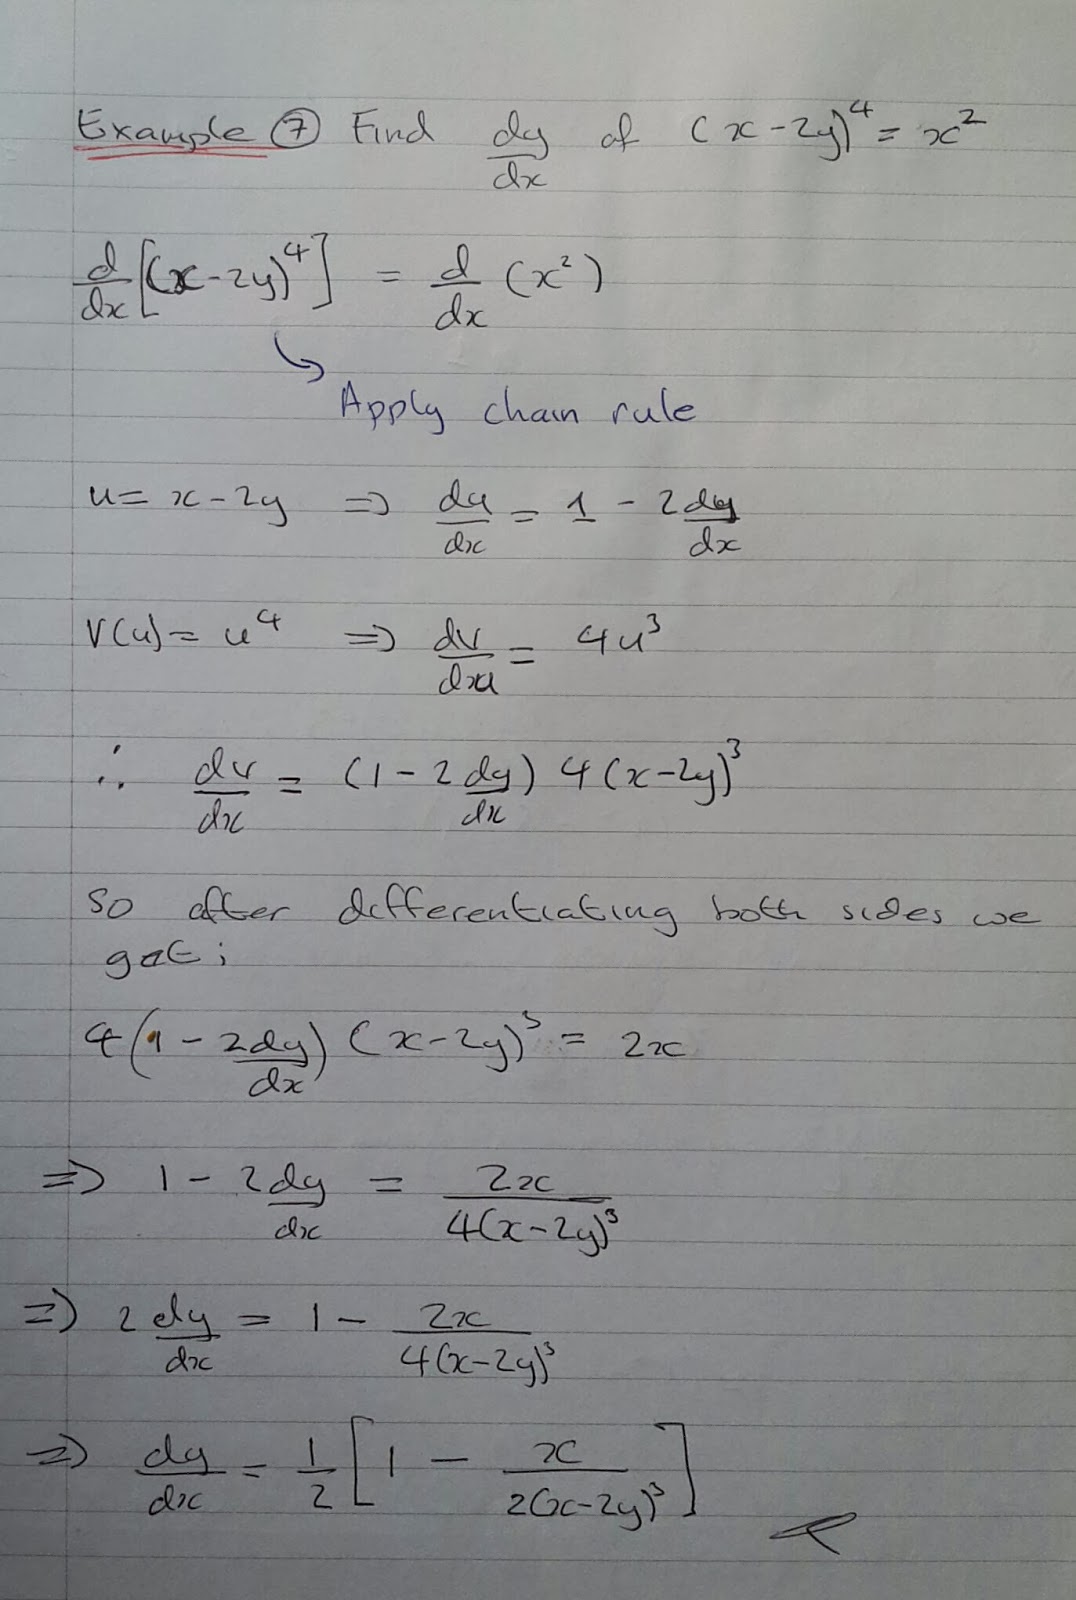 Example ⑦ Find dy/dx of (x-2y)⁴ = x²
d/dx[(x-2y)⁴] = d/dx (x²)
Apply chain rule
u = x - 2y ⇒ du/dx = 1 - 2dy/dx
V(u) = u⁴ ⇒ dv/du = 4u³
∴ dv/dx = (1 - 2dy/dx) 4(x-2y)³
So after differentiating both sides we
get;
4(1 - 2dy/dx)(x-2y)³ = 2x
⇒ 1 - 2dy/dx = 2x/4(x-2y)³
⇒ 2dy/dx = 1 - 2x/4(x-2y)³
⇒ dy/dx = 1/2[1 - x/2(x-2y)³]